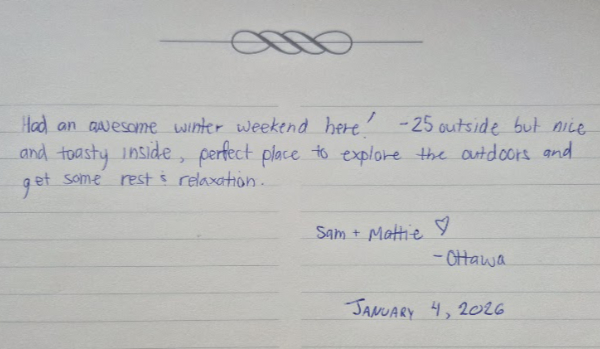 Had an awesome winter weekend here! -25 outside but nice
and toasty inside, perfect place to explore the outdoors and
get some rest & relaxation.
Sam + Mattie ♡
-Ottawa
January 4, 2026